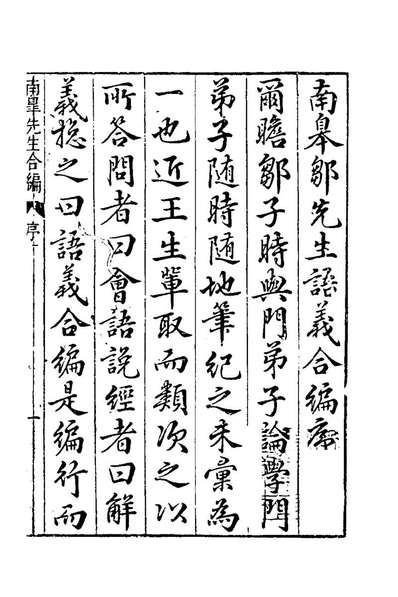 南臯鄒先生語義合編序
爾瞻鄒子時與門弟子論學門
弟子随時随地筆紀之未彙為
一也近王生輩取而類次之以
所答問者曰會語說經者曰解
義総之曰語義合編是編行而
南臯先生合編 序 一